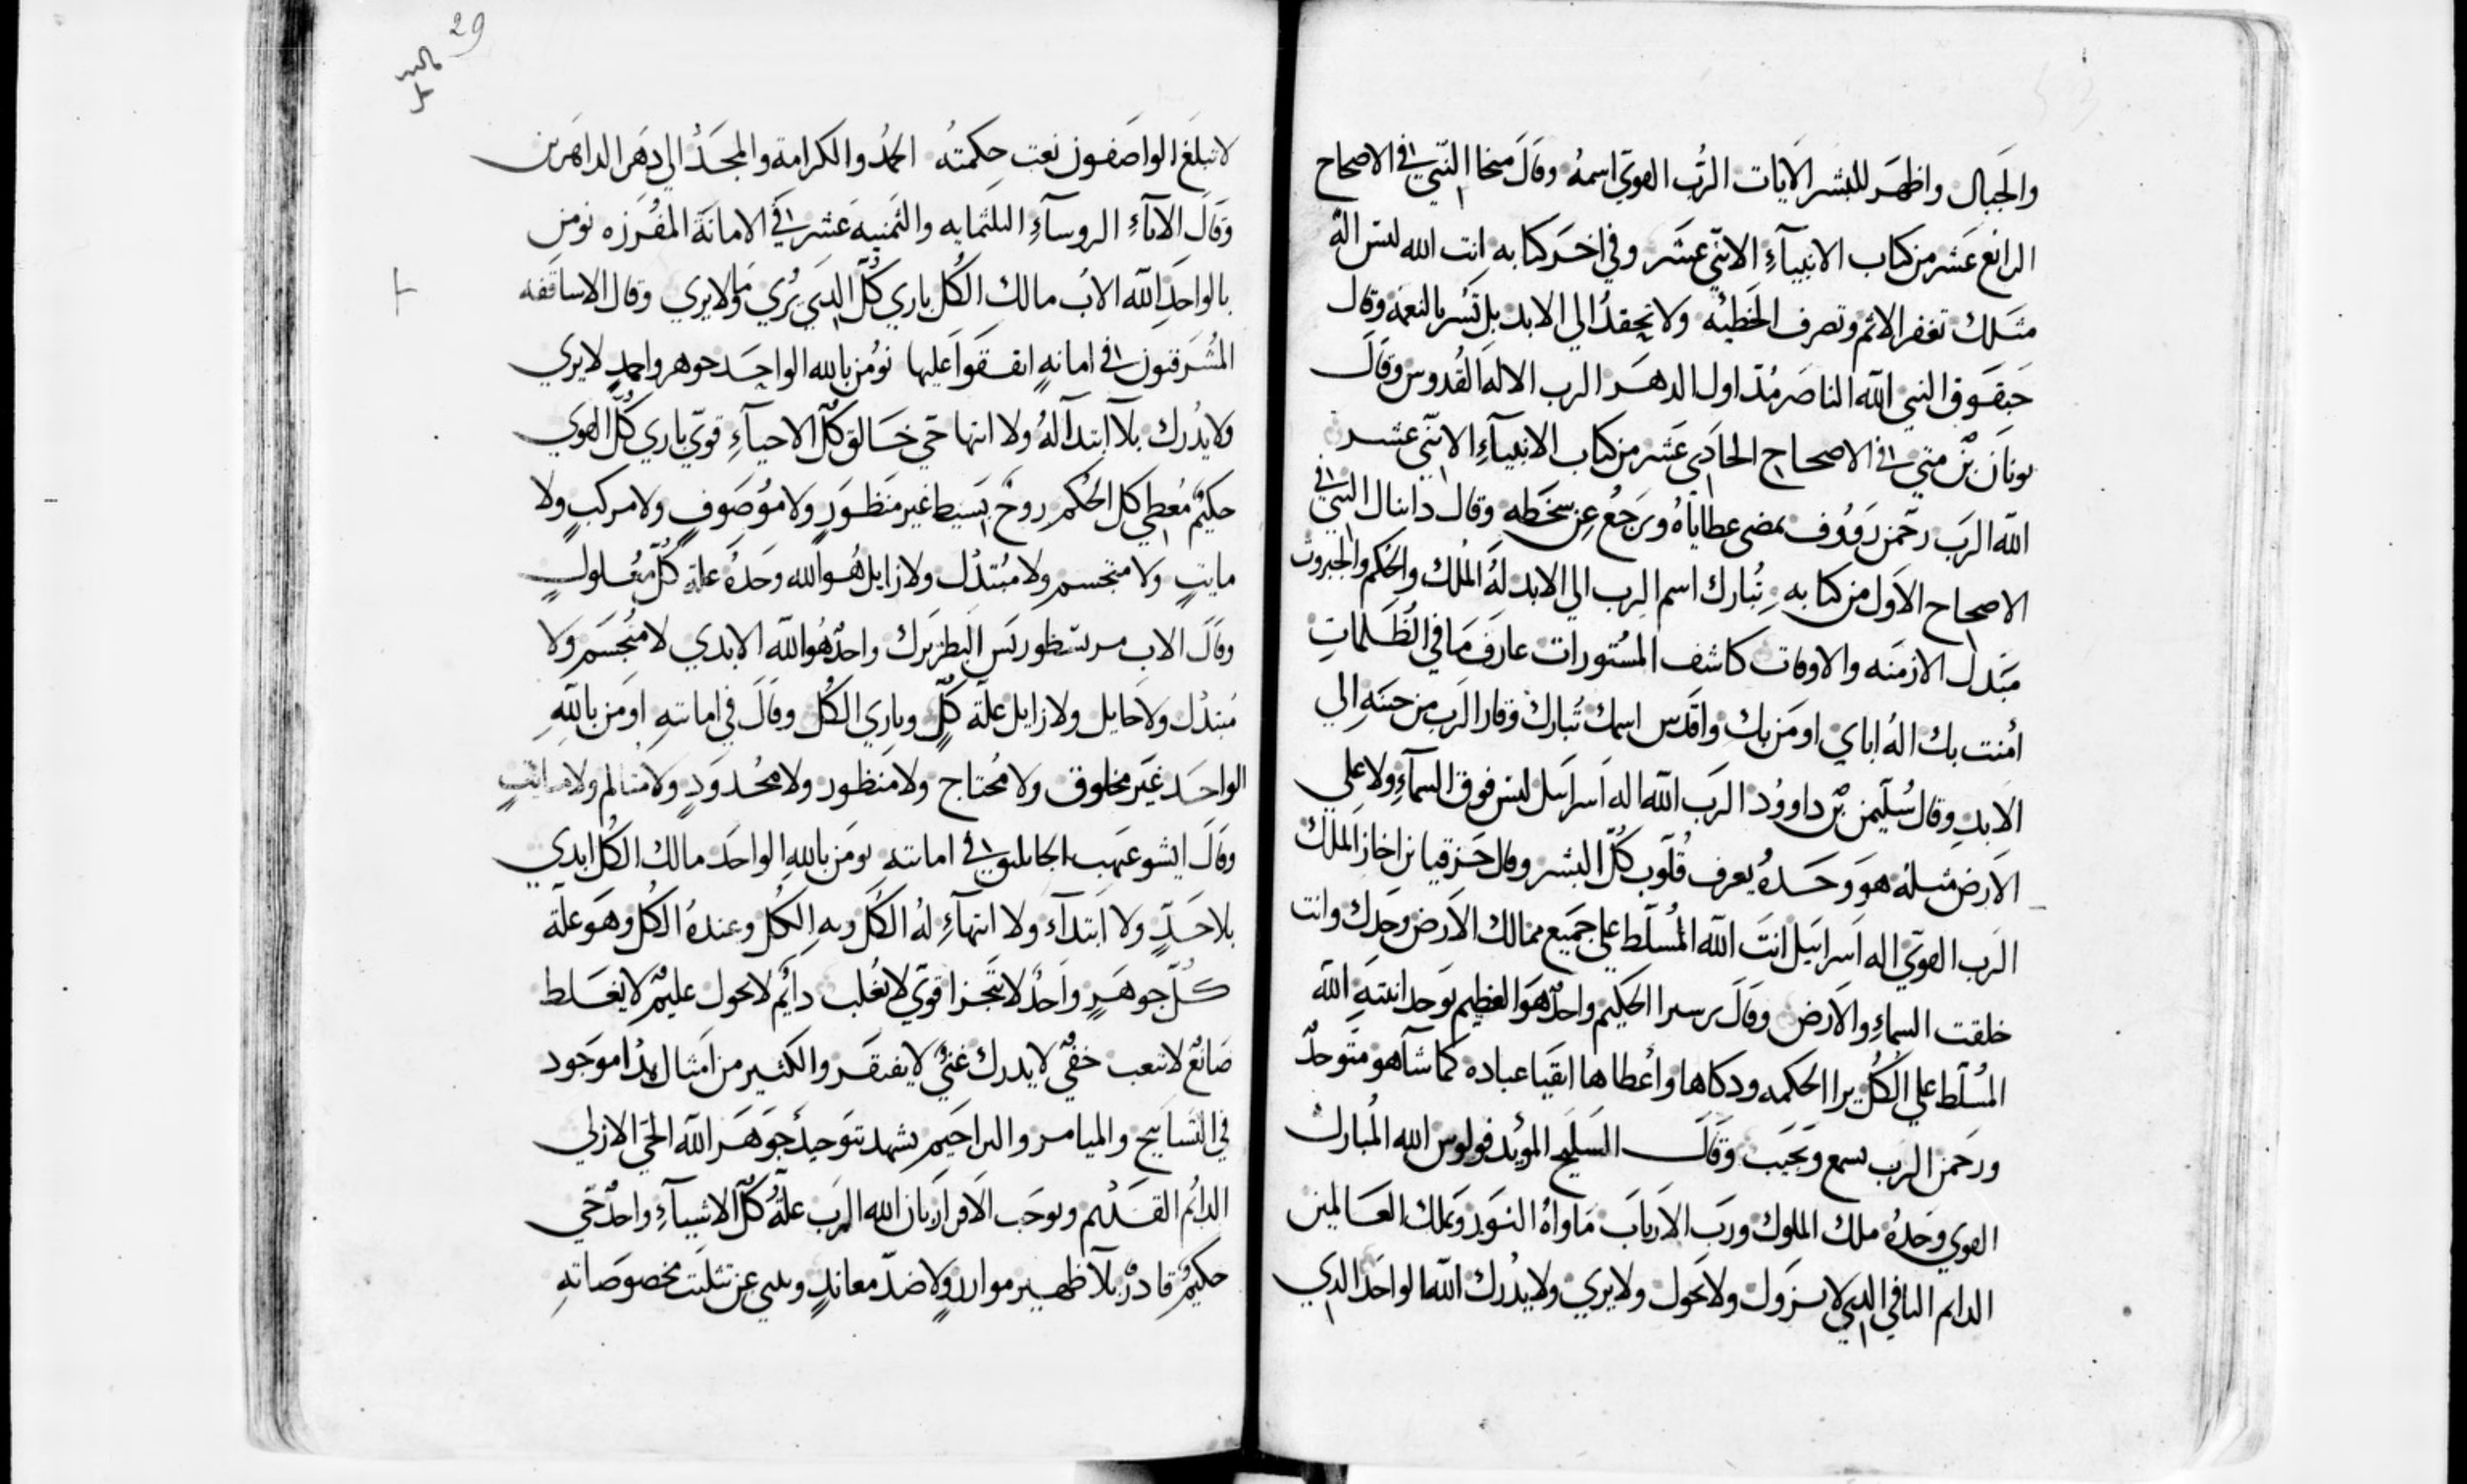 والجبال واظهر للبشر الايات الرب القوي اسمه وقال ميخا النبي في الاصحاح
الرابع عشر من كتاب الانبياء الاثني عشر وفي اخر كتابه انت الله ليس اله
مثلك تغفر الاثم وتصرف الخطيئه ولا تحقد الي الابد بل تسر بالنعمه وقال
حبقوق النبي الله الناصر مذ اول الدهر الرب الاله القدوس وقال
يونان بن متي في الاصحاح الحادي عشر من كتاب الانبياء الاثني عشر
الله الرب رحمن رووف يمضي عطاياه ويرجع عن سخطه وقال دانيال النبي في
الاصحاح الاول من كتابه تبارك اسم الرب الي الابد له الملك والحكم والجبروت
مبدل الازمنه والاوقات كاشف المستورات عارف ما في الظلمات
امنت بك اله اباي اومن بك واقدس اسمك تبارك وقار الرب من جنته الي
الابد وقال سليمن بن داوود الرب الله اله اسراييل ليس فوق السماء ولا علي
الارض مثله هو وحده يعرف قلوب كل البشر وقال حزقيا بن احاز الملك
الرب القوي اله اسراييل انت الله المسلط علي جميع ممالك الارض وحدك وانت
خلقت السماء والارض وقال برسيرا الحكيم واحد هو العظيم بوحدانيته الله
المسلط علي الكل برا الحكمه وذكاها واعطاها اتقيا عباده كما شا هو متوحد
ورحمن الرب يسمع ويجيب وقال السليح المويد فولوس الله المبارك
القوي وحده ملك الملوك ورب الارباب ماواه النور وملك العالمين
الدايم الباقي الذي لا يزول ولا يحول ولا يري ولا يدرك الله الواحد الذي
29
لا تبلغ الواصفون نعت حكمته الحمد والكرامة والمجد الي دهر الداهرين
وقال الاباء الروساء الثلثمايه والثمنية عشر في الامانة المفرزه نومن
بالواحد الله الاب مالك الكل باري كل الذي يري وما لا يري وقال الاساقفه
المشرقون في امانه اتفقوا عليها نومن بالله الواحد جوهر واحد لا يري
ولا يدرك بلا ابتدا له ولا انتها حي خالق كل الاحياء قوي باري كل القوي
حكيم معطي كل الحكم روح بسيط غير منظور ولا موصوف ولا مركب ولا
مايت ولا متجسم ولا مبتدل ولا زايل هو الله وحده علة كل معلول
وقال الاب مر نسطوريس البطريرك واحد هو الله الابدي لا متجسم ولا
مبتدل ولا حايل ولا زايل علة كل وباري الكل وقال في امانته اومن بالله
الواحد غير مخلوق ولا محتاج ولا منظور ولا محدود ولا متالم ولا مايت
وقال ايشوعيهب الجاثليق في امانته نومن بالله الواحد مالك الكل ابدي
بلا حد ولا ابتداء ولا انتهاء له الكل وبه الكل وعنده الكل وهو علة
كل جوهر واحد لا يتجزا قوي لا يغلب دايم لا يحول عليم لا يغلط
صانع لا يتعب خفي لا يدرك غني لا يفتقر والكثير من امثال هذا موجود
في التسابيح والميامر والتراجيم يشهد بتوحيد جوهر الله الحي الازلي
الدايم القديم ويوجب الاقرار بان الله الرب علة كل الاشياء واحد حي
حكيم قادر بلا ظهير موازر ولا ضد معاند وينبي عن تثليث خصوصاته